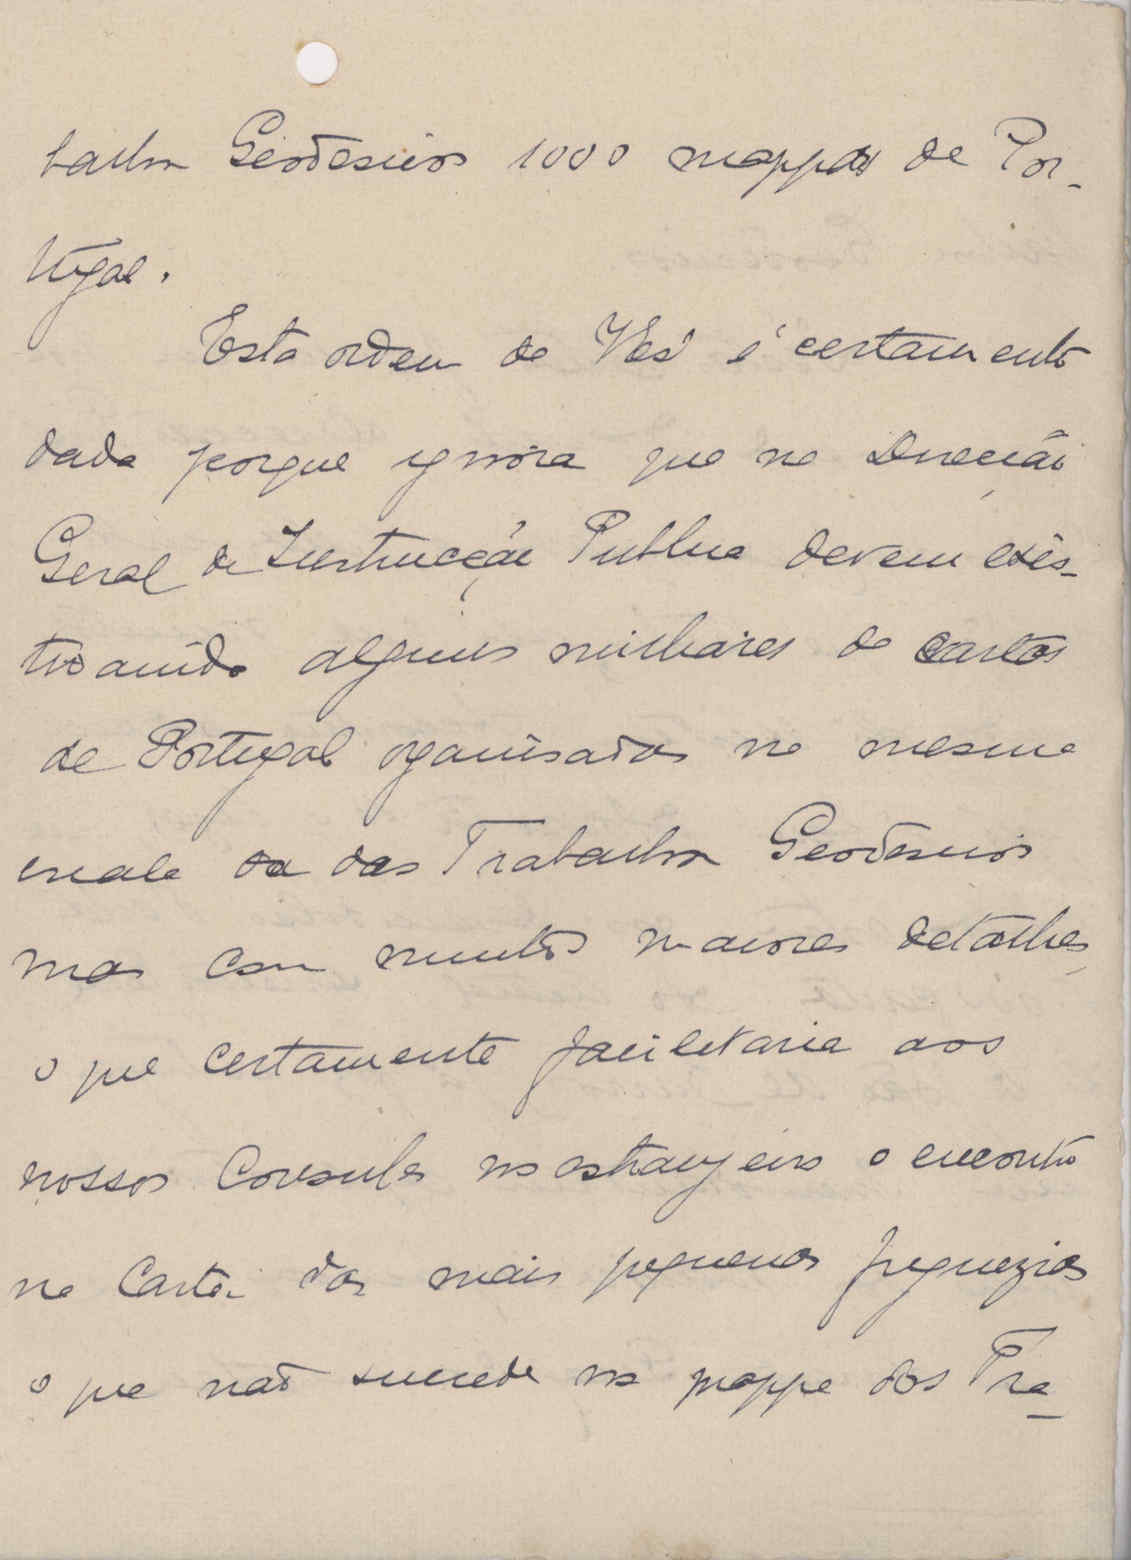 balhos Geodesicos 1000 mappas de Por-
tugal.
Esta ordem de V. Exª é certamente
dada porque ignora que na Direcção
Geral de Instrucção Publica devem exis-
tir ainda alguns milhares de cartas
de Portugal organisadas na mesma
escala da dos Trabalhos Geodesicos
mas com muitos maiores detalhes,
o que certamente facilitaria aos
nossos Consules no estrangeiro o encontro
na Carta das mais pequenas freguezias
o que não succede no mappa dos Tra-